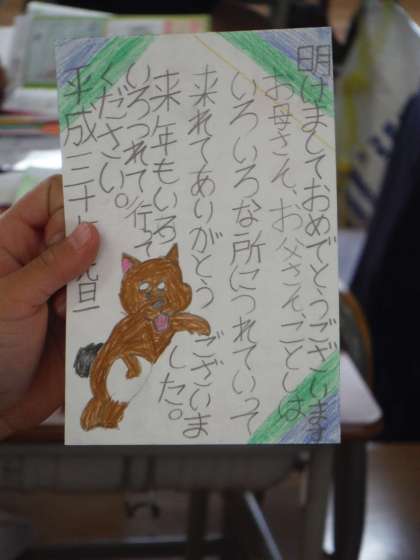 明けましておめでとうございます
お母さん、お父さん、ことしは
いろいろな所につれていって
来れてありがとうございま
した。
来年もいろ
いろつれて行って
ください。
平成三十 元旦